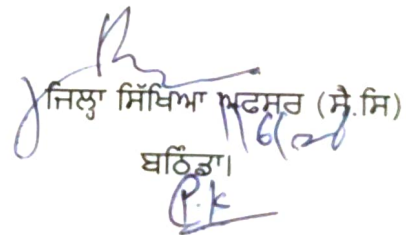 ਜਿਲ੍ਹਾ ਸਿੱਖਿਆ ਅਫਸਰ (ਸੈ.ਸਿ)
ਬਠਿੰਡਾ।
P.K